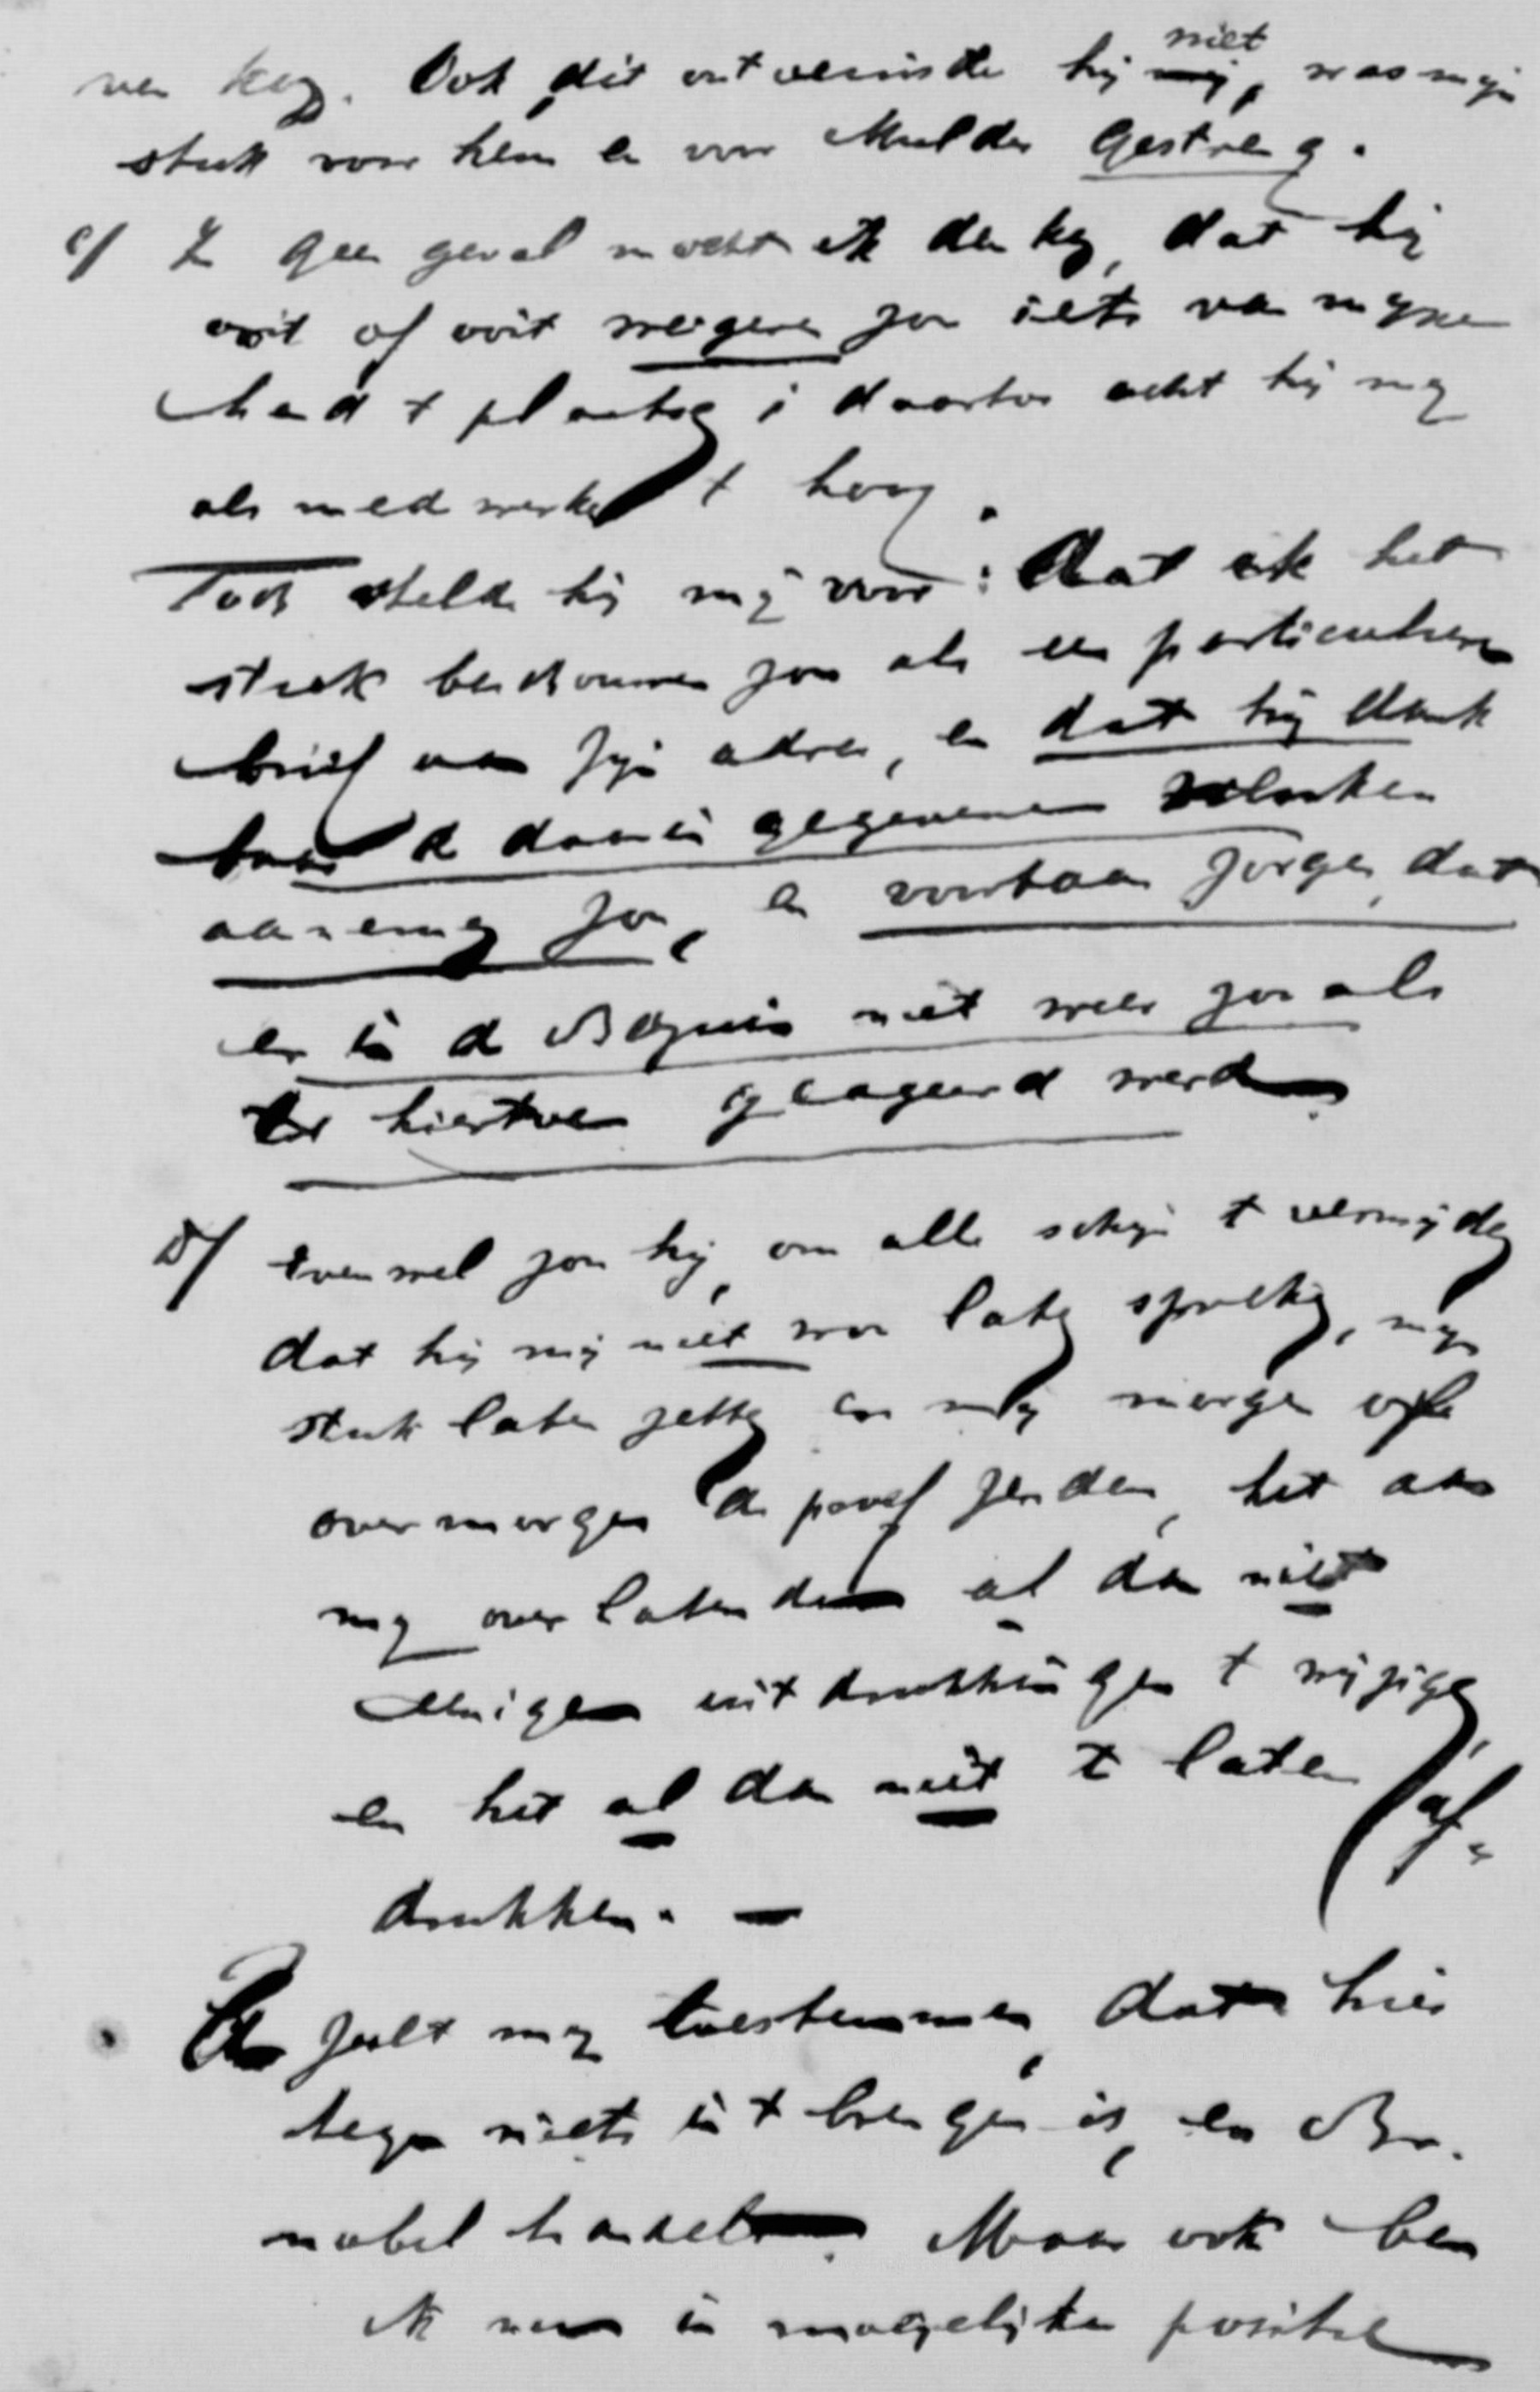 ven keer. Ook dit ontveinsde hij niet, was mijn
stuk voor hem en voor Mulder gestreng.
c/ In geen geval mocht ik denken, dat hij
ooit of ooit weigeren zou iets van mijne
hand te plaatsen; daartoe acht hij mij
als medewerker te hoog.
Toch stelde hij mij voor: dat ik het
stuk beschouwen zou als een particulieren
brief aan zijn adres, en dat hij dank
baar de daarin gegevene
aannemen zou, en voortaan zorgen, dat
er in de niet meer zou als
tot hiertoe geageerd werd
D/ Evenwel zou hij, om alle schijn te vermijden
dat hij mij niet wou laten spreken, mijn
stuk laten zetten en mij morgen of
overmorgen de proef zenden, het aan
mij overlatende al dan niet
eenige uitdrukkingen te wijzigen,
en het al dan niet te laten af-
drukken. —
Ge zult mij toestemmen, dat hier
tegen niets in te brengen is, en
nobel handelt. Maar ook ben
ik nu in moeijelijke positie